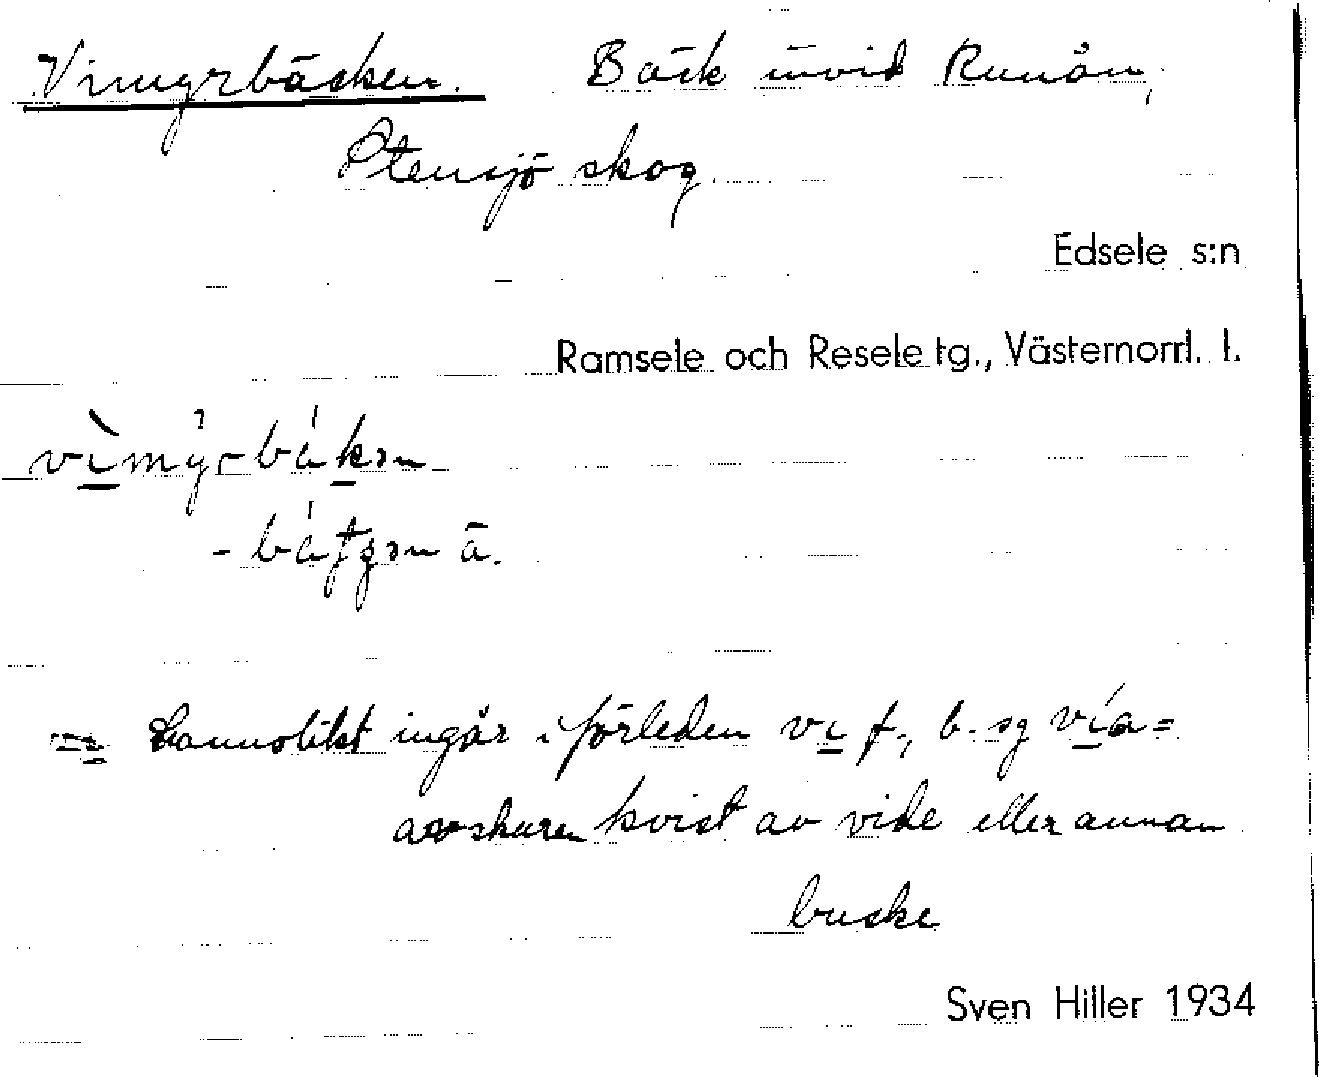 Vimyrbäcken. Bäck invid Runån,
Stensjö skog
Edsele s:n
Ramsele och Resele tg., Västernorrl. l.
vìmẏr-bákən
Sannolikt ingår i förleden vi f., b. sg vía =
avskuren kvist av vide eller annan
buske
Sven Hiller 1934